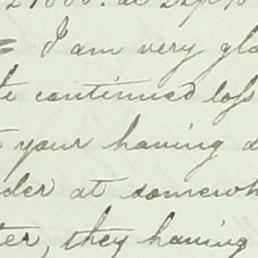 I am very gla
te continued loss
t your having d
der at somewh
ter, they having